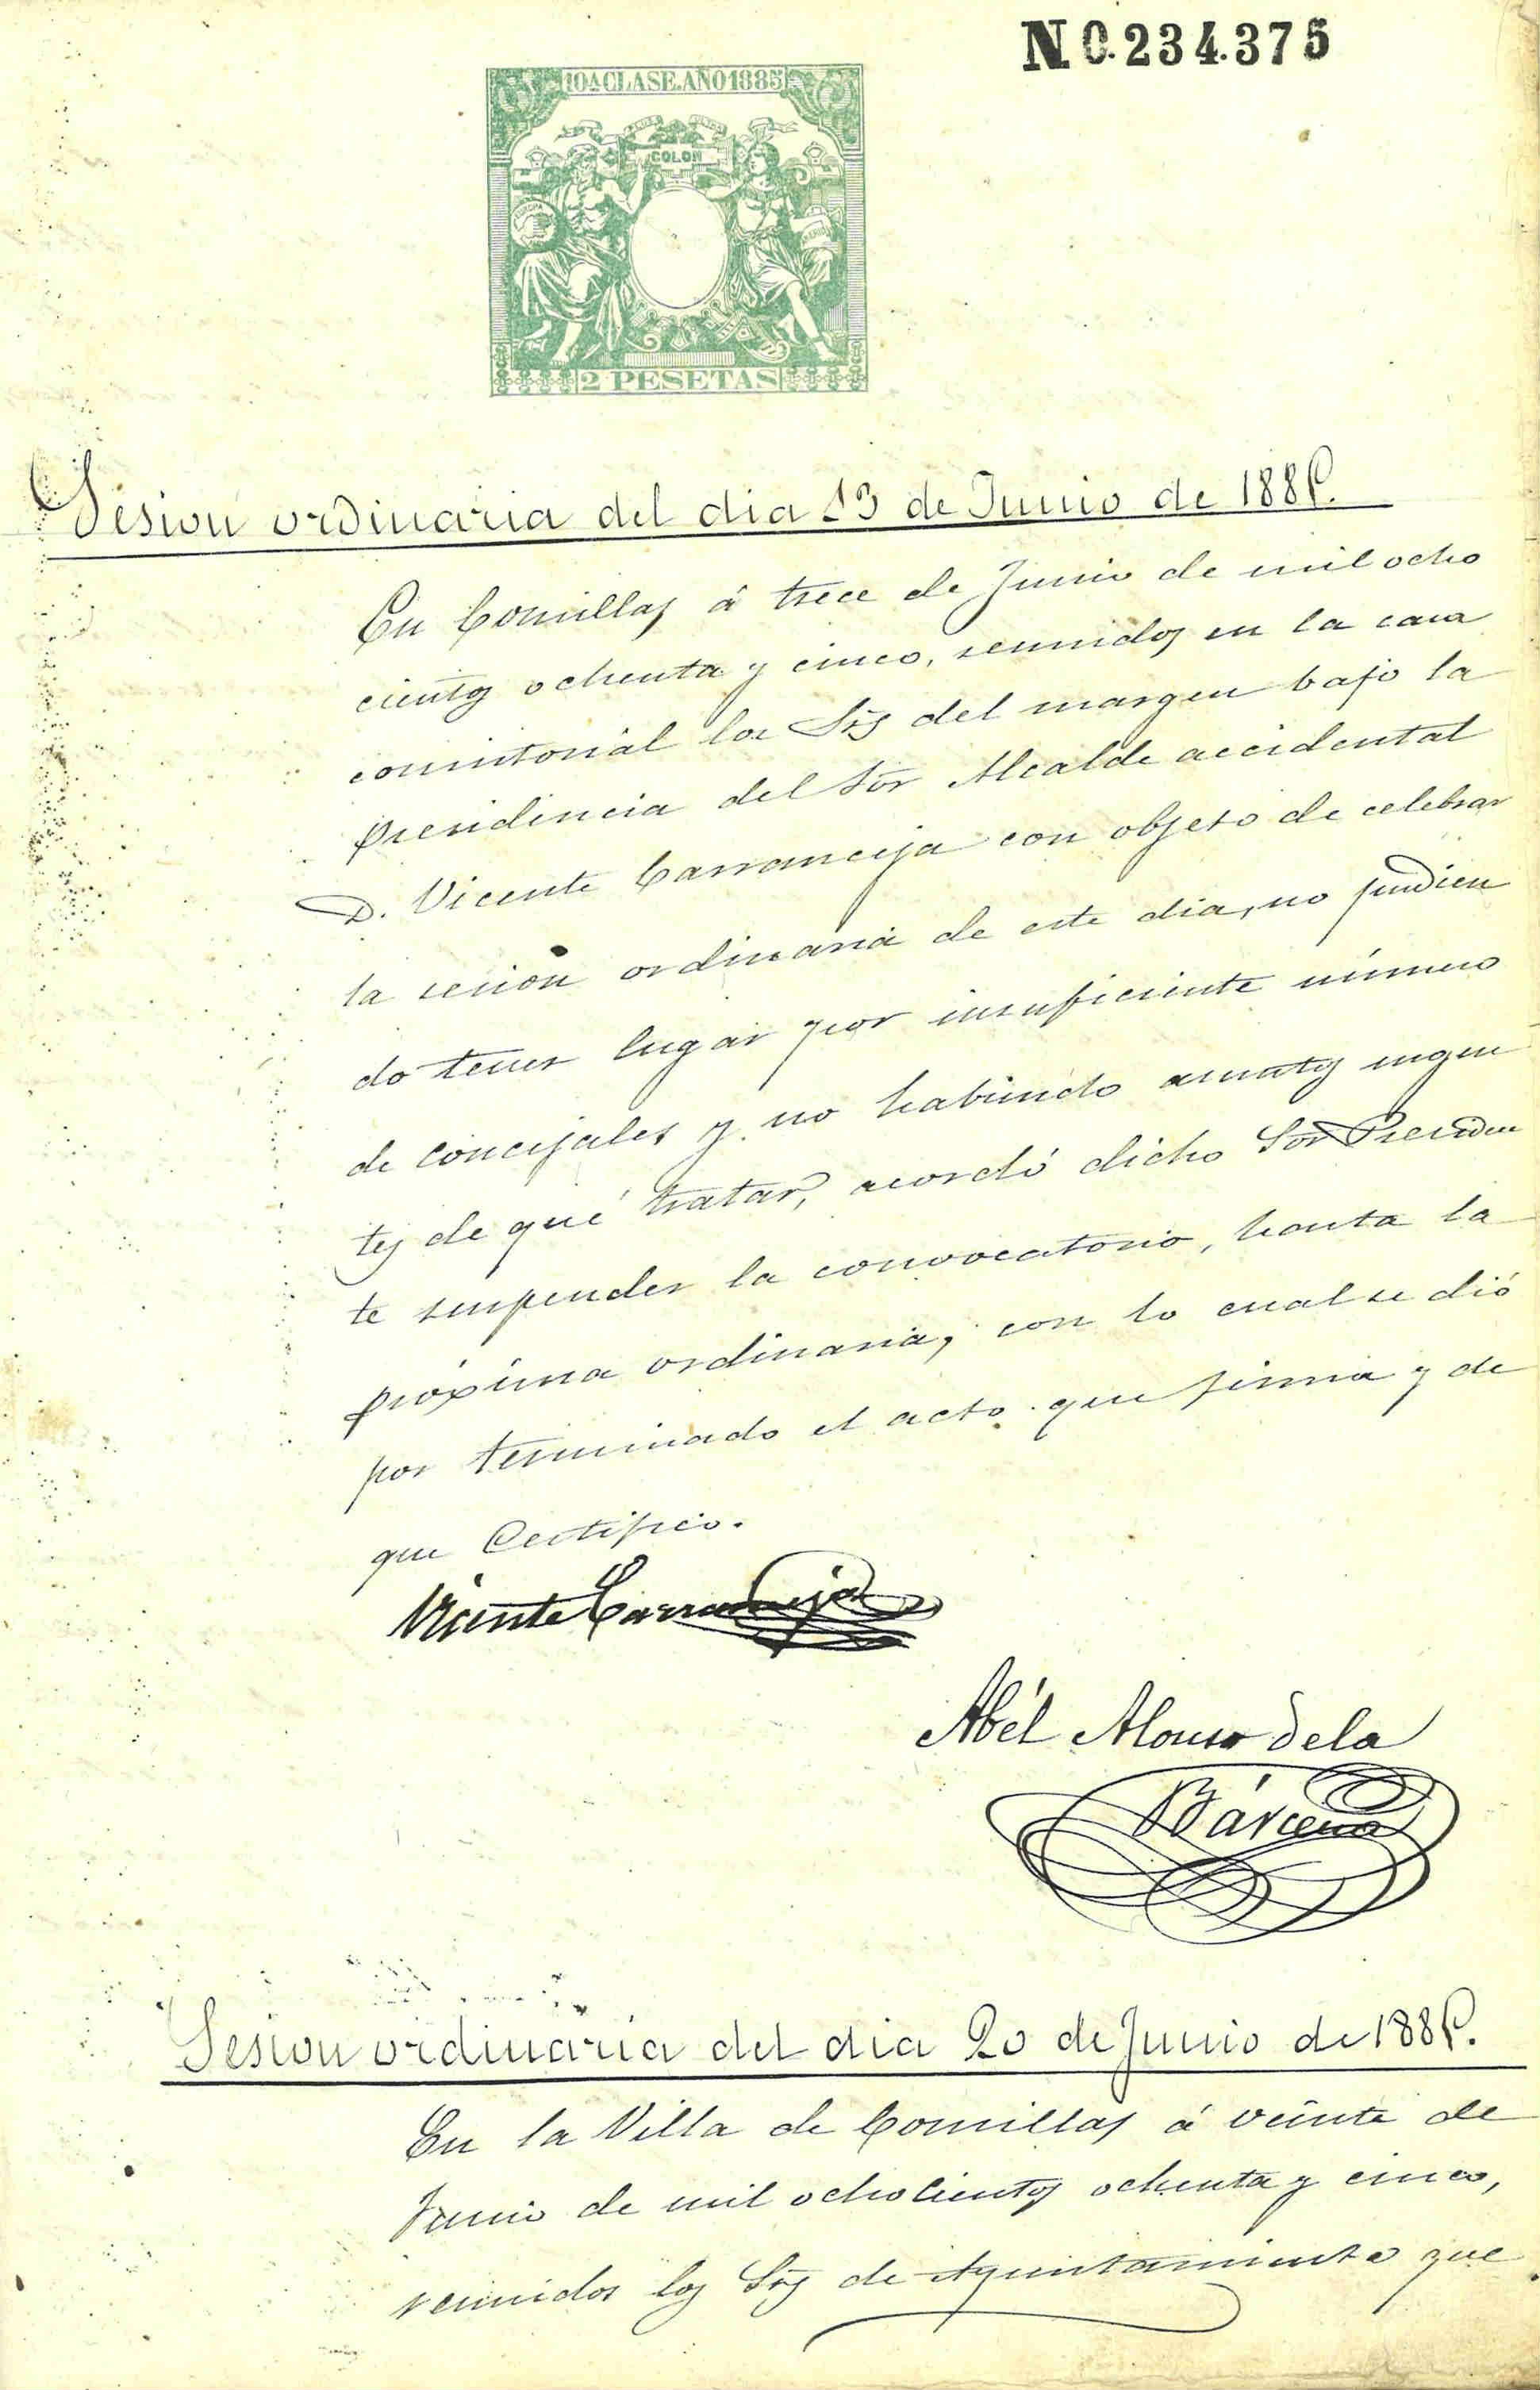 N 0.234.375
10A CLASE. AÑO 1885
PLUS ULTRA
COLON
EUROPA
AMERICA
2 PESETAS
Sesion ordinaria del dia 13 de Junio de 1885.
En Comillas á trece de Junio de mil ocho
cientos ochenta y cinco, reunidos en la casa
consistorial los Srs del margen bajo la
presidencia del Sor Alcalde accidental
D. Vicente Carranceja con objeto de celebrar
la sesion ordinaria de este dia, no pudien
do tener lugar por insuficiente número
de concejales y no habiendo asuntos urgen
tes de qué tratar, acordó dicho Sor Presiden
te suspender la convocatoria, hasta la
próxima ordinaria, con lo cual se dió
por terminado el acto que firma y de
que Certifico.
Vicente Carranceja
Abél Alonso de la
Bárcena
Sesion ordinaria del dia 20 de Junio de 1885.
En la Villa de Comillas á veinte de
Junio de mil ochocientos ochenta y cinco,
reunidos los Srs de Ayuntamiento que